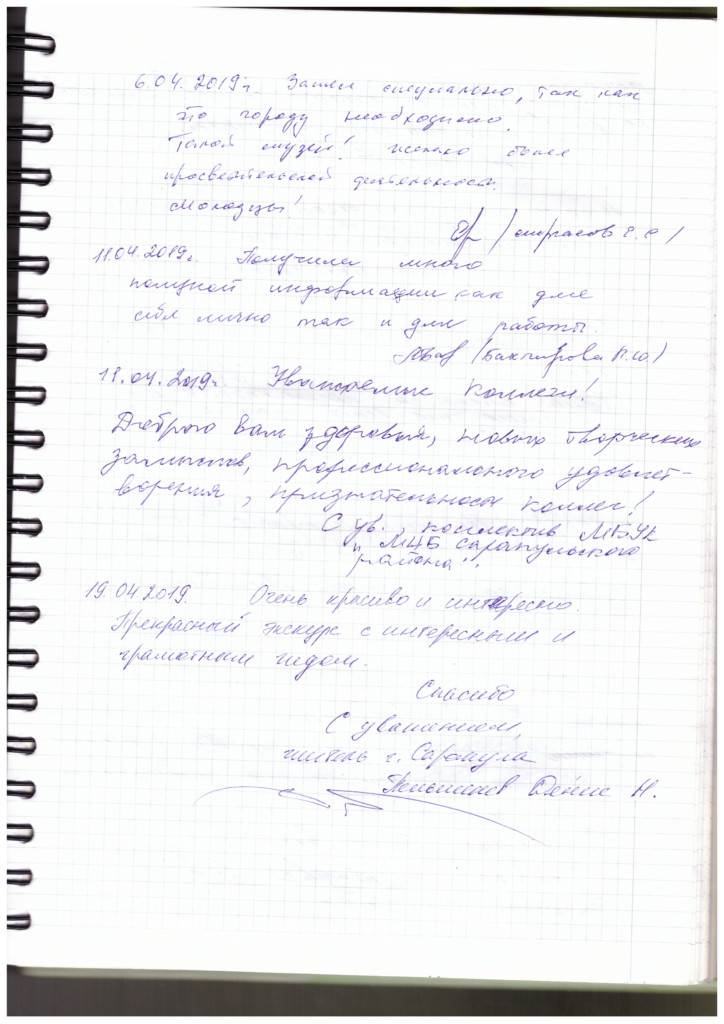 6.04.2019г. Зашли специально, так как
это городу необходимо.
Такой музей! только более
просветительской деятельности.
Молодцы!
11.04.2019г. Получила много
полезной информации как для
себя лично так и для работы.
(Бахтирова П.Ю.)
18.04.2019г. Уважаемые коллеги!
Доброго Вам здоровья, новых творческих
замыслов, профессионального удовлет-
ворения, признательности коллег!
С ув., коллектив МБУК
"МЦБ Сарапульского
района".
19.04.2019. Очень красиво и интересно.
Прекрасный экскурс с интересным и
грамотным гидом.
Спасибо
С уважением,
житель г. Сарапула
Денис Н.